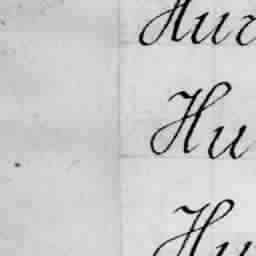 Hur
Hu
Hu